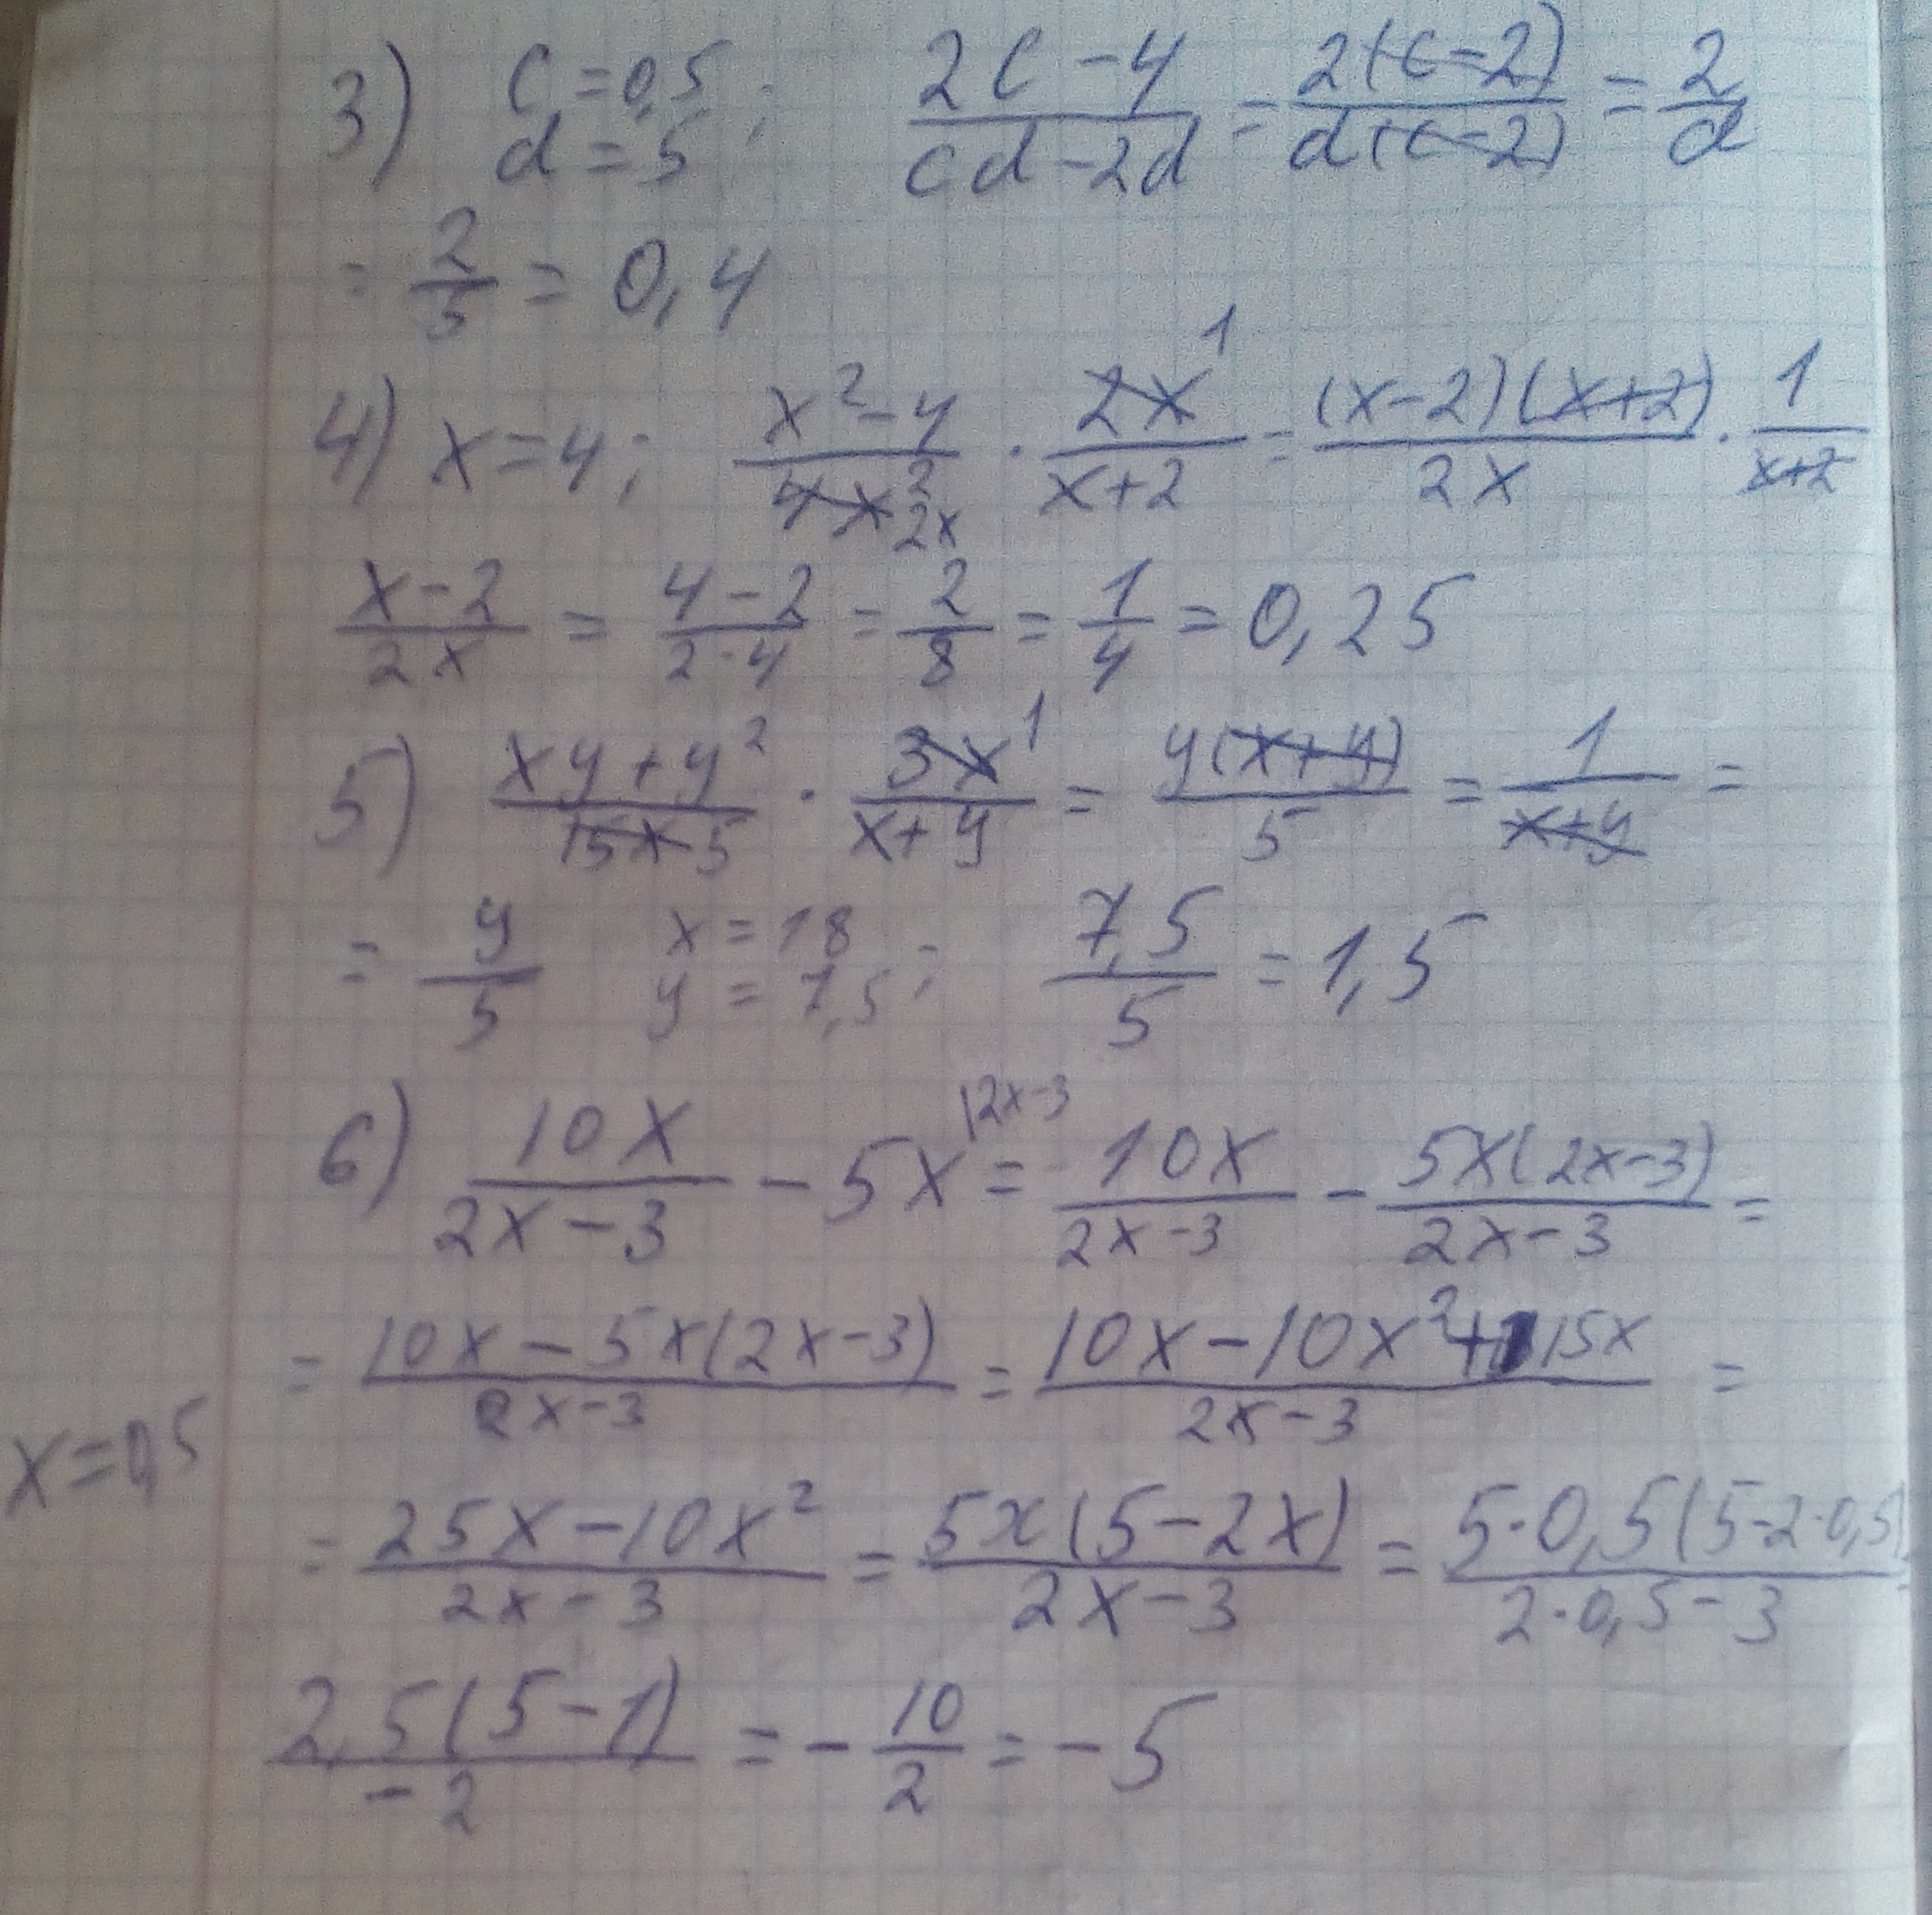 3) c = 0,5 d = 5 ; (2c - 4)/(cd - 2d) = 2(c - 2)/d(c - 2) = 2/d
= 2/5 = 0,4
4) x = 4; (x² - 4)/(4x² 2x) · (2x 1)/(x + 2) = (x - 2)(x + 2)/2x · 1/(x + 2)
(x - 2)/2x = (4 - 2)/(2·4) = 2/8 = 1/4 = 0,25
5) (xy + y²)/(15x 5) · (3x 1)/(x + y) = y(x + y)/5 = 1/(x + y) =
= y/5 x = 18 y = 7,5 ; 7,5/5 = 1,5
6) 10x/(2x - 3) - 5x |2x-3 = 10x/(2x - 3) - 5x(2x - 3)/(2x - 3) =
= (10x - 5x(2x - 3))/(2x - 3) = (10x - 10x² + 15x)/(2x - 3) =
x = 0,5
= (25x - 10x²)/(2x - 3) = 5x(5 - 2x)/(2x - 3) = 5·0,5(5 - 2·0,5)/(2·0,5 - 3)
2,5(5 - 1)/-2 = - 10/2 = - 5